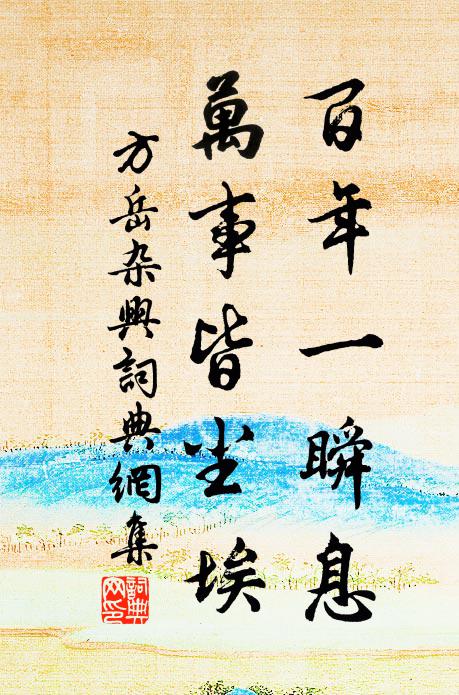 百年一瞬息
萬事皆尘埃
方岳杂興詞典網集
詞典
网印